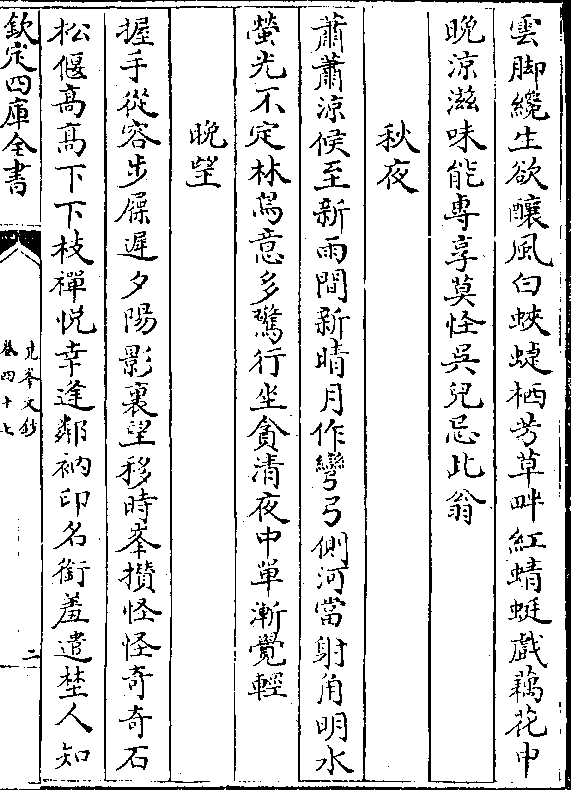 雲脚纔生欲釀風白蛺蜨栖芳草畔紅蜻蜓戲藕花中
晩涼滋味能專享莫怪吳兒忌此翁
秋夜
蕭蕭涼候至新雨間新晴月作彎弓側河當射角明水
螢光不定林鳥意多驚行坐貪清夜中單漸覺輕
晩望
握手從容步屧遲夕陽影裏望移時峯攢怪怪奇奇石
松偃高高下下枝禪悅幸逢鄰衲印名銜羞遣埜人知
欽定四庫全書
堯峯文鈔
卷四十七
二